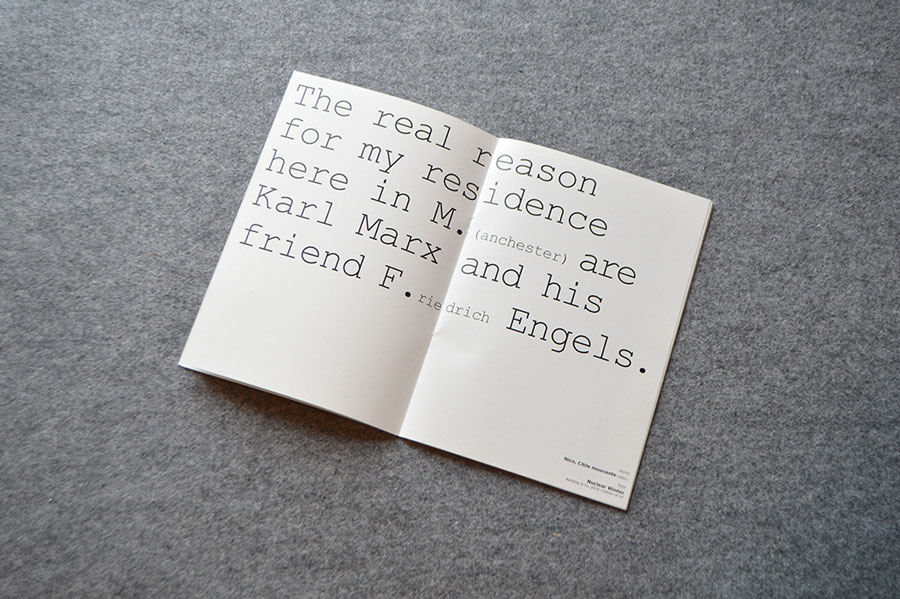 The real reason
for my residence
here in M. (anchester) are
Karl Marx and his
friend F. riedrich Engels.
Nico, Cible mouvante
Nuclear Winter